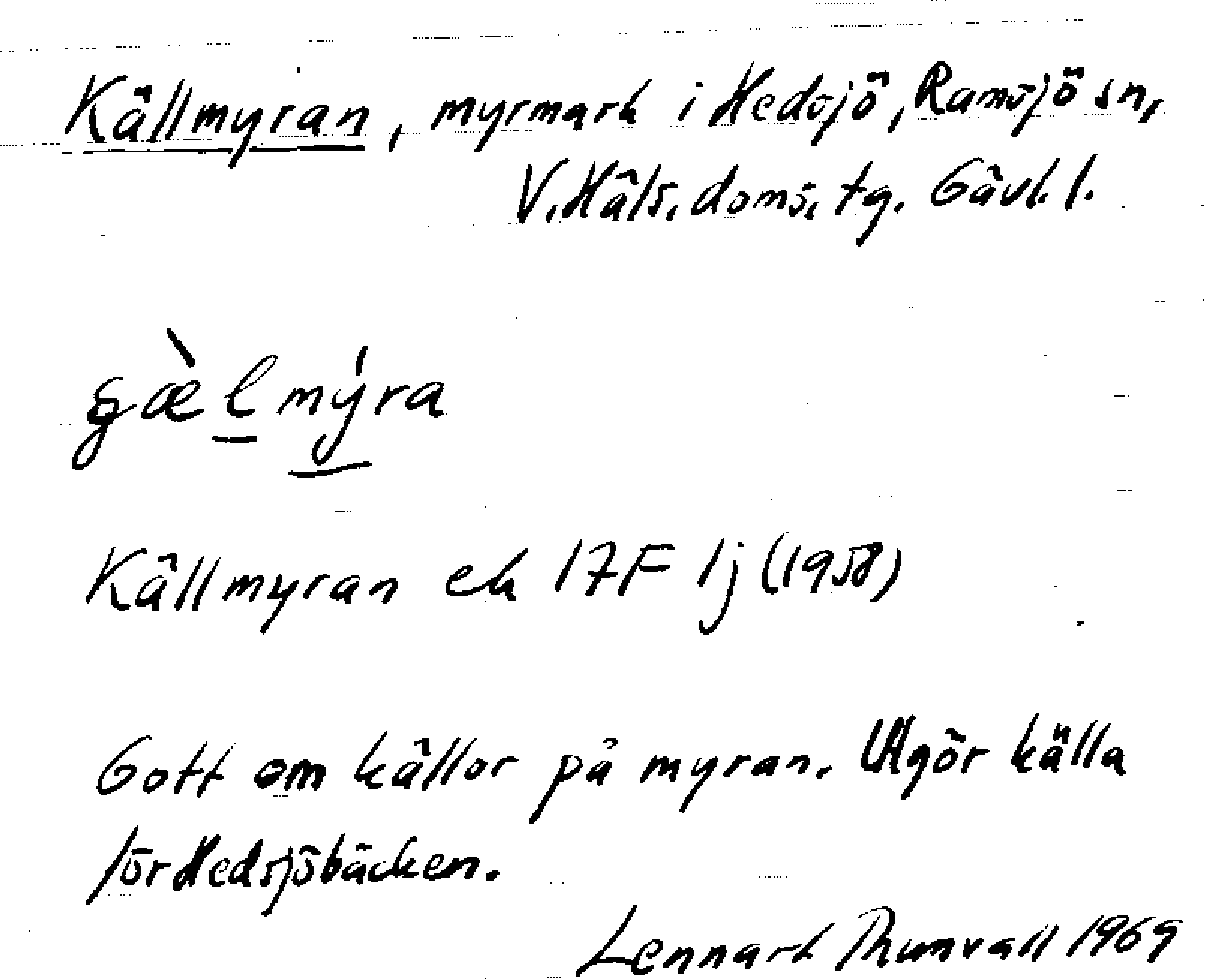 Källmyran, myrmark i Hedsjö, Ramsjö sn,
V. Häls. doms. tg. Gävl. l.
gæ̀lmýra
Källmyran ek 17F 1j (1958)
Gott om källor på myran. Utgör källa
för Hedsjöbäcken.
Lennart Thunvall 1969